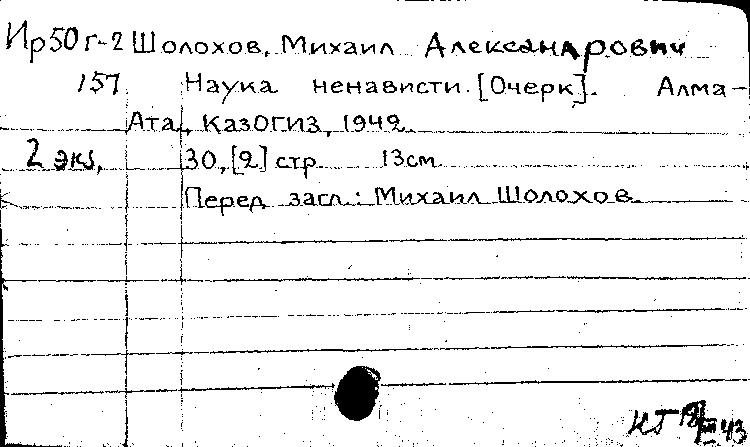 Ир50г-2 Шолохов, Михаил Александрович
157 Наука ненависти. [Очерк]. Алма-
Ата, КазОГИЗ, 1942.
2 экз. 30, [2] стр. 13см
Перед загл.: Михаил Шолохов.
КГ 18/III 43